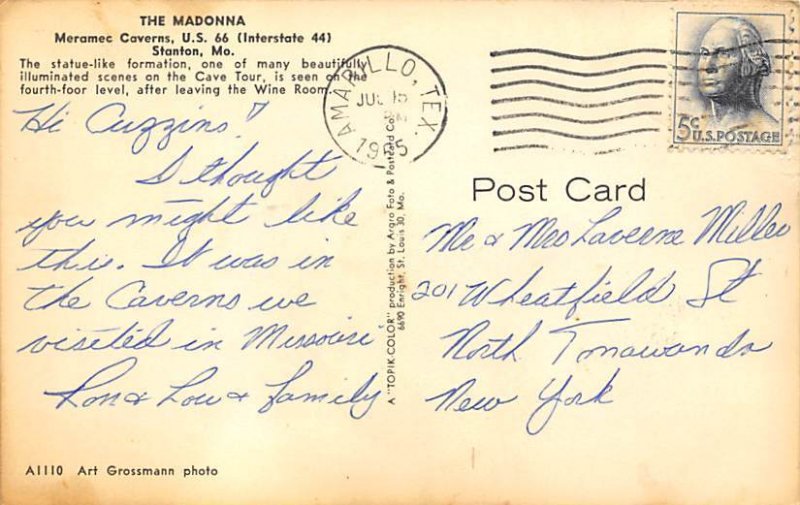 THE MADONNA
Meramec Caverns, U.S. 66 (Interstate 44)
Stanton, Mo.
The statue-like formation, one of many beautifully
illuminated scenes on the Cave Tour, is seen on the
fourth-foor level, after leaving the Wine Room.
Hi Cuzzins!
I thought
you might like
this. It was in
the Caverns we
visited in Missouri
Lon & Lou & family
A1110 Art Grossmann photo
A "TOPIK-COLOR" production by Argro Foto & Postcard Co.
6690 Enright, St. Louis 30, Mo.
AMARILLO, TEX.
JUL 15
1965
5c U.S. POSTAGE
Post Card
Mr & Mrs Laverne Miller
201 Wheatfield St
North Tonawanda
New York